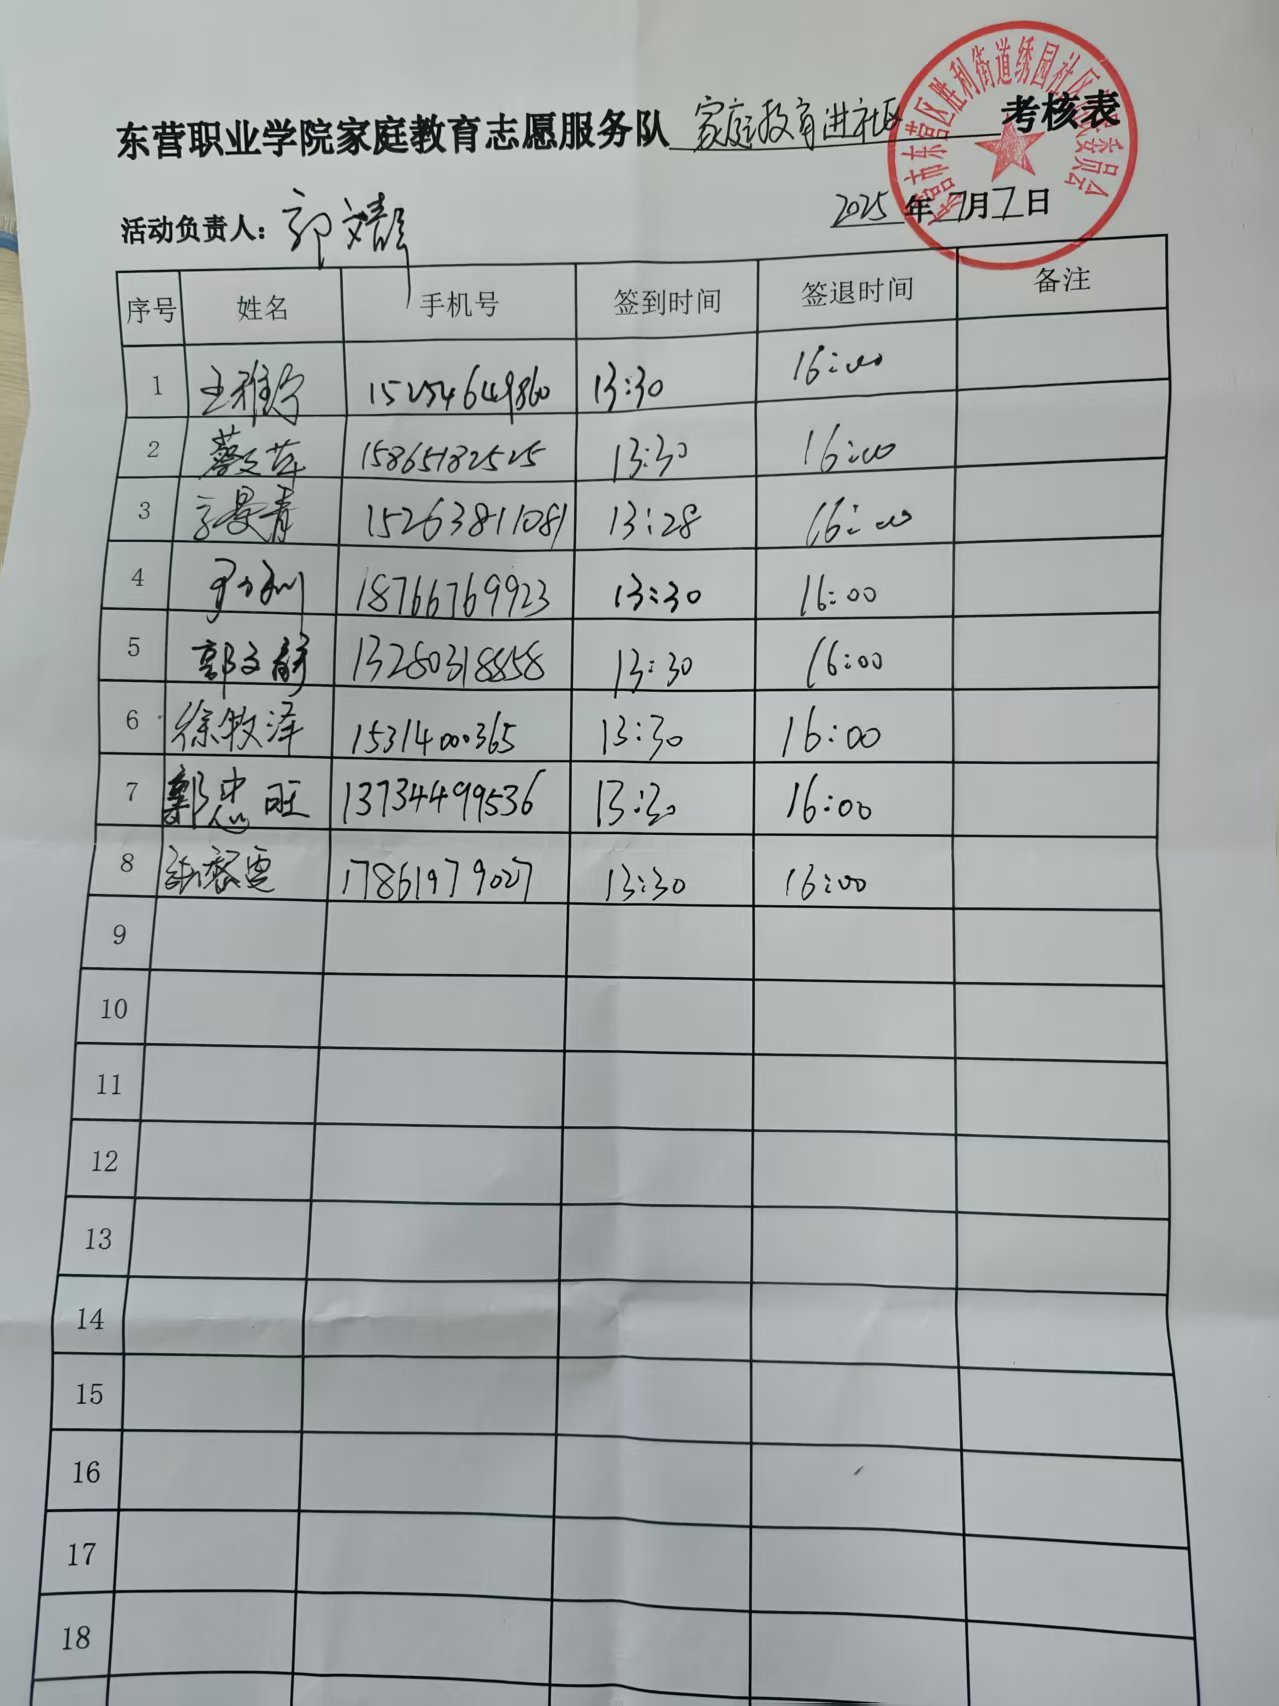 东营职业学院家庭教育志愿服务队 家庭教育进社区 考核表
东营市东营区胜利街道绣园社区居民委员会
活动负责人： 郭文 2025 年 7 月 7 日
序号 姓名 手机号 签到时间 签退时间 备注
1 王雅 15254649860 13:30 16:00
2 蔡文萍 15865182525 13:30 16:00
3 曼青 15263811081 13:28 16:00
4 18766769923 13:30 16:00
5 郭文 13280318858 13:30 16:00
6 徐牧泽 15314000365 13:30 16:00
7 郭忠旺 13734499536 13:30 16:00
8 17861979027 13:30 16:00
9
10
11
12
13
14
15
16
17
18